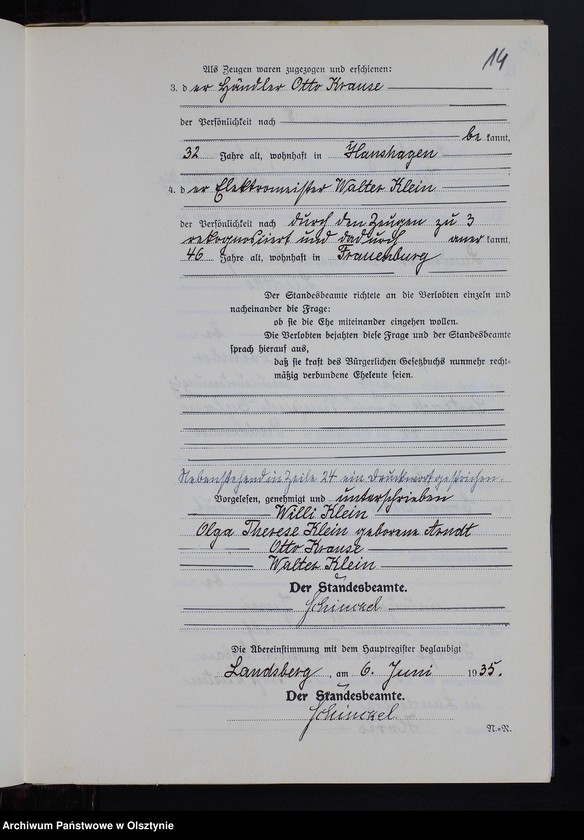 14
Als Zeugen waren zugezogen und erschienen:
3. der Händler Otto Krause
der Persönlichkeit nach
be kannt,
32 Jahre alt, wohnhaft in Hanshagen
4. der Elektromeister Walter Klein
der Persönlichkeit nach durch den Zeugen zu 3
rekognosziert und dadurch aner kannt,
46 Jahre alt, wohnhaft in Frauenburg
Der Standesbeamte richtete an die Verlobten einzeln und
nacheinander die Frage:
ob sie die Ehe miteinander eingehen wollen.
Die Verlobten bejahten diese Frage und der Standesbeamte
sprach hierauf aus,
daß sie kraft des Bürgerlichen Gesetzbuchs nunmehr recht-
mäßig verbundene Eheleute seien.
Nebenstehend in Zeile 24 ein Druckwort gestrichen.
Vorgelesen, genehmigt und unterschrieben
Willi Klein
Olga Therese Klein geborene Arndt
Otto Krause
Walter Klein
Der Standesbeamte.
Schinckel
Die Übereinstimmung mit dem Hauptregister beglaubigt
Landsberg, am 6. Juni 1935.
Der Standesbeamte.
Schinckel
N.=R.
Archiwum Państwowe w Olsztynie